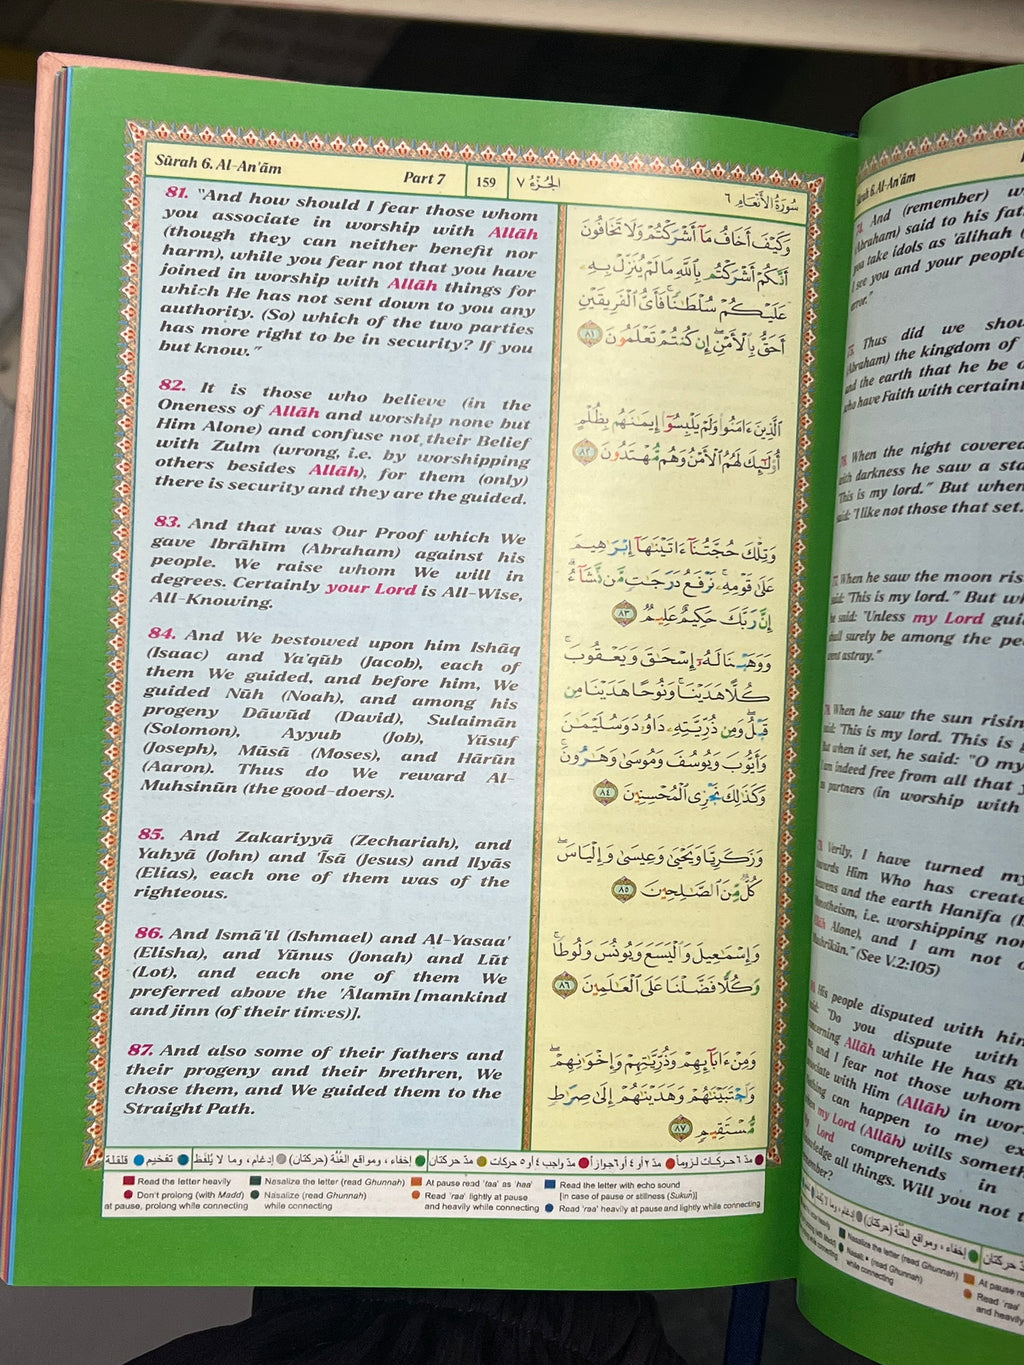 Sûrah 6. Al-An'ãm
Part 7
159
الجُزْءُ ٧
سُورَةُ الأَنْعَامِ ٦
81. "And how should I fear those whom
you associate in worship with Allâh
(though they can neither benefit nor
harm), while you fear not that you have
joined in worship with Allâh things for
which He has not sent down to you any
authority. (So) which of the two parties
has more right to be in security? If you
but know."
82. It is those who believe (in the
Oneness of Allâh and worship none but
Him Alone) and confuse not their Belief
with Zulm (wrong, i.e. by worshipping
others besides Allâh), for them (only)
there is security and they are the guided.
83. And that was Our Proof which We
gave Ibrâhîm (Abraham) against his
people. We raise whom We will in
degrees. Certainly your Lord is All-Wise,
All-Knowing.
84. And We bestowed upon him Ishâq
(Isaac) and Ya'qûb (Jacob), each of
them We guided, and before him, We
guided Nûh (Noah), and among his
progeny Dâwûd (David), Sulaimân
(Solomon), Ayyub (Job), Yûsuf
(Joseph), Mûsâ (Moses), and Hârûn
(Aaron). Thus do We reward Al-
Muhsinûn (the good-doers).
85. And Zakariyyâ (Zechariah), and
Yahyâ (John) and 'Îsâ (Jesus) and Ilyâs
(Elias), each one of them was of the
righteous.
86. And Ismâ'îl (Ishmael) and Al-Yasaa'
(Elisha), and Yûnus (Jonah) and Lût
(Lot), and each one of them We
preferred above the 'Ãlamîn [mankind
and jinn (of their times)].
87. And also some of their fathers and
their progeny and their brethren, We
chose them, and We guided them to the
Straight Path.
وَكَيْفَ أَخَافُ مَآ أَشْرَكْتُمْ وَلَا تَخَافُونَ
أَنَّكُمْ أَشْرَكْتُم بِاللَّهِ مَا لَمْ يُنَزِّلْ بِهِۦ
عَلَيْكُمْ سُلْطَٰنًا ۚ فَأَىُّ الْفَرِيقَيْنِ
أَحَقُّ بِالْأَمْنِ ۖ إِن كُنتُمْ تَعْلَمُونَ ٨١
الَّذِينَ ءَامَنُوا وَلَمْ يَلْبِسُوٓا إِيمَٰنَهُم بِظُلْمٍ
أُو۟لَٰٓئِكَ لَهُمُ الْأَمْنُ وَهُم مُّهْتَدُونَ ٨٢
وَتِلْكَ حُجَّتُنَآ ءَاتَيْنَٰهَآ إِبْرَٰهِيمَ
عَلَىٰ قَوْمِهِۦ ۚ نَرْفَعُ دَرَجَٰتٍ مَّن نَّشَآءُ ۗ
إِنَّ رَبَّكَ حَكِيمٌ عَلِيمٌ ٨٣
وَوَهَبْنَا لَهُۥٓ إِسْحَٰقَ وَيَعْقُوبَ ۚ
كُلًّا هَدَيْنَا ۚ وَنُوحًا هَدَيْنَا مِن
قَبْلُ ۖ وَمِن ذُرِّيَّتِهِۦ دَاوُۥدَ وَسُلَيْمَٰنَ
وَأَيُّوبَ وَيُوسُفَ وَمُوسَىٰ وَهَٰرُونَ ۚ
وَكَذَٰلِكَ نَجْزِى الْمُحْسِنِينَ ٨٤
وَزَكَرِيَّا وَيَحْيَىٰ وَعِيسَىٰ وَإِلْيَاسَ ۖ
كُلٌّ مِّنَ الصَّٰلِحِينَ ٨٥
وَإِسْمَٰعِيلَ وَالْيَسَعَ وَيُونُسَ وَلُوطًا ۚ
وَكُلًّا فَضَّلْنَا عَلَى الْعَٰلَمِينَ ٨٦
وَمِنْ ءَابَآئِهِمْ وَذُرِّيَّٰتِهِمْ وَإِخْوَٰنِهِمْ ۖ
وَاجْتَبَيْنَٰهُمْ وَهَدَيْنَٰهُمْ إِلَىٰ صِرَٰطٍ
مُّسْتَقِيمٍ ٨٧
مدّ ٦ حركات لزوماً مدّ ٢ أو ٤ أو ٦ جوازاً مدّ واجب ٤ أو ٥ حركات مدّ حركتان إخفاء، ومواقع الغُنَّة (حركتان) إدغام، وما لا يُلفَظ تفخيم قلقلة
Read the letter heavily
Nasalize the letter (read Ghunnah)
At pause read 'taa' as 'haa'
Read the letter with echo sound
[in case of pause or stillness (Sukun)]
Don't prolong (with Madd)
at pause, prolong while connecting
Nasalize (read Ghunnah)
while connecting
Read 'raa' lightly at pause
and heavily while connecting
Read 'raa' heavily at pause and lightly while connecting
Sûrah 6. Al-An'ãm
74. And (remember)
(Abraham) said to his
you take idols as 'âlihah
I see you and your people
error."
75. Thus did we
(Abraham) the kingdom of
and the earth that he be
who have Faith with
76. When the night covered
with darkness he saw a
"This is my lord." But when
said: "I like not those that set.
77. When he saw the moon
said: "This is my lord." But
he said: "Unless my Lord
shall surely be among the
went astray."
78. When he saw the sun
said: "This is my lord. This is
But when it set, he said: "O my
I am indeed free from all that
as partners (in worship with
79. Verily, I have turned my
towards Him Who has
heavens and the earth Hanîfa
Monotheism, i.e. worshipping
Allâh Alone), and I am not
Mushrikûn." (See V.2:105)
80. His people disputed with
said: "Do you dispute with
concerning Allâh while He has
me, and I fear not those whom
associate with Him (Allâh) in
can happen to me)
my Lord (Allâh) wills
Lord comprehends in
all things. Will you not
إخفاء، ومواقع الغُنَّة (حركتان)
مدّ حركتان
Nasalize the letter (read Ghunnah)
(read Ghunnah)
while connecting
At pause
Read 'raa'
and heavily